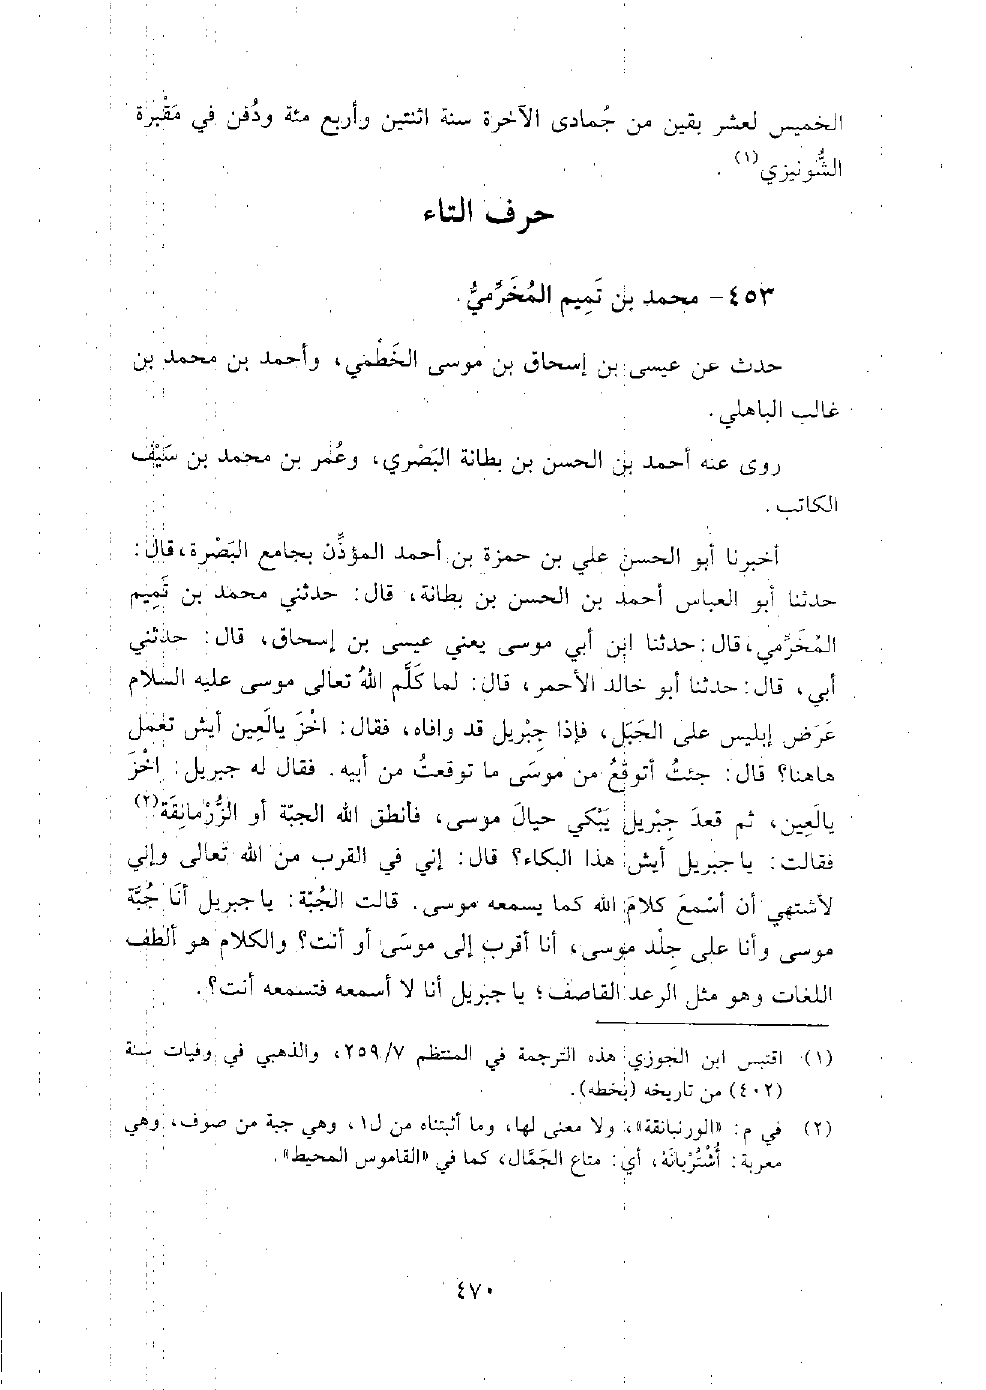 الخميس لعشر بقين من جُمادى الآخرة سنة اثنتين وأربع مئة ودُفن في مَقْبرة
الشُّونيزي(١) .
حرف التاء
٤٥٣- محمد بن تَمِيم المُخَرِّميُّ.
حدث عن عيسى بن إسحاق بن موسى الخَطْمي، وأحمد بن محمد بن
غالب الباهلي.
روى عنه أحمد بن الحسن بن بطانة البَصْري، وعُمر بن محمد بن سَيْف
الكاتب.
أخبرنا أبو الحسن علي بن حمزة بن أحمد المؤذِّن بجامع البَصْرة، قال:
حدثنا أبو العباس أحمد بن الحسن بن بطانة، قال: حدثني محمد بن تَمِيم
المُخَرِّمي، قال: حدثنا ابن أبي موسى يعني عيسى بن إسحاق، قال: حدثني
أبي، قال: حدثنا أبو خالد الأحمر، قال: لما كَلَّم اللهُ تعالى موسى عليه السلام
عَرَض إبليس على الجَبَل، فإذا جِبْريل قد وافاه، فقال: اخْزَ يالَعِين أيش تعمل
هاهنا؟ قال: جئتُ أتوقعُ من موسَى ما توقعتُ من أبيه. فقال له جبريل: اخْزَ
يالَعِين، ثم قعدَ جِبْريل يَبْكي حيالَ موسى، فأنطق الله الجبّة أو الزُّرْمانِقَة(٢)
فقالت: يا جبريل أيش هذا البكاء؟ قال: إني في القرب من الله تعالى وإني
لأشتهي أن أسْمعَ كلامَ الله كما يسمعه موسى. قالت الجُبّة: يا جبريل أنَا جُبَّة
موسى وأنا على جِلْد موسى، أنا أقرب إلى موسَى أو أنت؟ والكلام هو ألطف
اللغات وهو مثل الرعد القاصف؛ يا جبريل أنا لا أسمعه فتسمعه أنت؟.
(١) اقتبس ابن الجوزي هذه الترجمة في المنتظم ٧/ ٢٥٩، والذهبي في وفيات سنة
(٤٠٢) من تاريخه (بخطه).
(٢) في م: «الورنبانقة»، ولا معنى لها، وما أثبتناه من ل١، وهي جبة من صوف، وهي
معربة: أُشْتُرْبانَهْ، أي: متاع الجَمَّال، كما في «القاموس المحيط».
٤٧٠